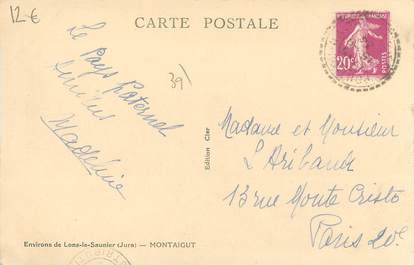 12 €
CARTE POSTALE
Le
Pays Paternel
39
Madeleine
RÉPUBLIQUE FRANÇAISE
20c
POSTES
Edition Cler
Madame et Monsieur
L'Aribaud
13 rue Monte Cristo
Paris 20e
Environs de Lons-le-Saunier (Jura) — MONTAIGUT